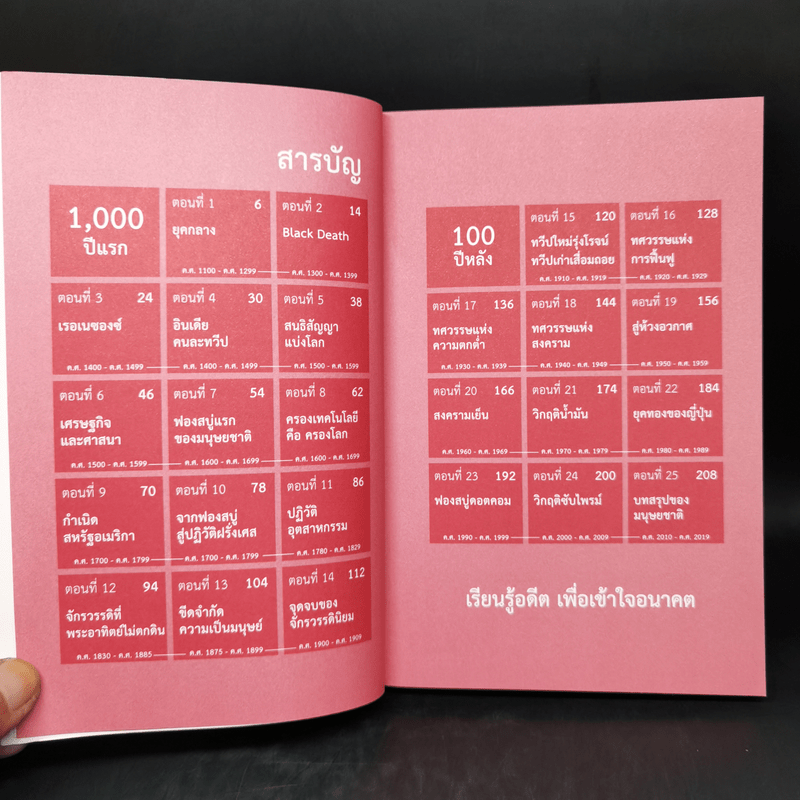 สารบัญ
1,000
ปีแรก
ตอนที่ 1 6
ยุคกลาง
ค.ศ. 1100 - ค.ศ. 1299
ตอนที่ 2 14
Black Death
ค.ศ. 1300 - ค.ศ. 1399
ตอนที่ 3 24
เรอเนซองซ์
ค.ศ. 1400 - ค.ศ. 1499
ตอนที่ 4 30
อินเดีย
คนละทวีป
ค.ศ. 1400 - ค.ศ. 1499
ตอนที่ 5 38
สนธิสัญญา
แบ่งโลก
ค.ศ. 1500 - ค.ศ. 1599
ตอนที่ 6 46
เศรษฐกิจ
และศาสนา
ค.ศ. 1500 - ค.ศ. 1599
ตอนที่ 7 54
ฟองสบู่แรก
ของมนุษยชาติ
ค.ศ. 1600 - ค.ศ. 1699
ตอนที่ 8 62
ครองเทคโนโลยี
คือ ครองโลก
ค.ศ. 1600 - ค.ศ. 1699
ตอนที่ 9 70
กำเนิด
สหรัฐอเมริกา
ค.ศ. 1700 - ค.ศ. 1799
ตอนที่ 10 78
จากฟองสบู่
สู่ปฏิวัติฝรั่งเศส
ค.ศ. 1700 - ค.ศ. 1799
ตอนที่ 11 86
ปฏิวัติ
อุตสาหกรรม
ค.ศ. 1780 - ค.ศ. 1829
ตอนที่ 12 94
จักรวรรดิที่
พระอาทิตย์ไม่ตกดิน
ค.ศ. 1830 - ค.ศ. 1885
ตอนที่ 13 104
ขีดจำกัด
ความเป็นมนุษย์
ค.ศ. 1875 - ค.ศ. 1899
ตอนที่ 14 112
จุดจบของ
จักรวรรดินิยม
ค.ศ. 1900 - ค.ศ. 1909
100
ปีหลัง
ตอนที่ 15 120
ทวีปใหม่รุ่งโรจน์
ทวีปเก่าเสื่อมถอย
ค.ศ. 1910 - ค.ศ. 1919
ตอนที่ 16 128
ทศวรรษแห่ง
การฟื้นฟู
ค.ศ. 1920 - ค.ศ. 1929
ตอนที่ 17 136
ทศวรรษแห่ง
ความตกต่ำ
ค.ศ. 1930 - ค.ศ. 1939
ตอนที่ 18 144
ทศวรรษแห่ง
สงคราม
ค.ศ. 1940 - ค.ศ. 1949
ตอนที่ 19 156
สู่ห้วงอวกาศ
ค.ศ. 1950 - ค.ศ. 1959
ตอนที่ 20 166
สงครามเย็น
ค.ศ. 1960 - ค.ศ. 1969
ตอนที่ 21 174
วิกฤติน้ำมัน
ค.ศ. 1970 - ค.ศ. 1979
ตอนที่ 22 184
ยุคทองของญี่ปุ่น
ค.ศ. 1980 - ค.ศ. 1989
ตอนที่ 23 192
ฟองสบู่ดอตคอม
ค.ศ. 1990 - ค.ศ. 1999
ตอนที่ 24 200
วิกฤติซับไพรม์
ค.ศ. 2000 - ค.ศ. 2009
ตอนที่ 25 208
บทสรุปของ
มนุษยชาติ
ค.ศ. 2010 - ค.ศ. 2019
เรียนรู้อดีต เพื่อเข้าใจอนาคต